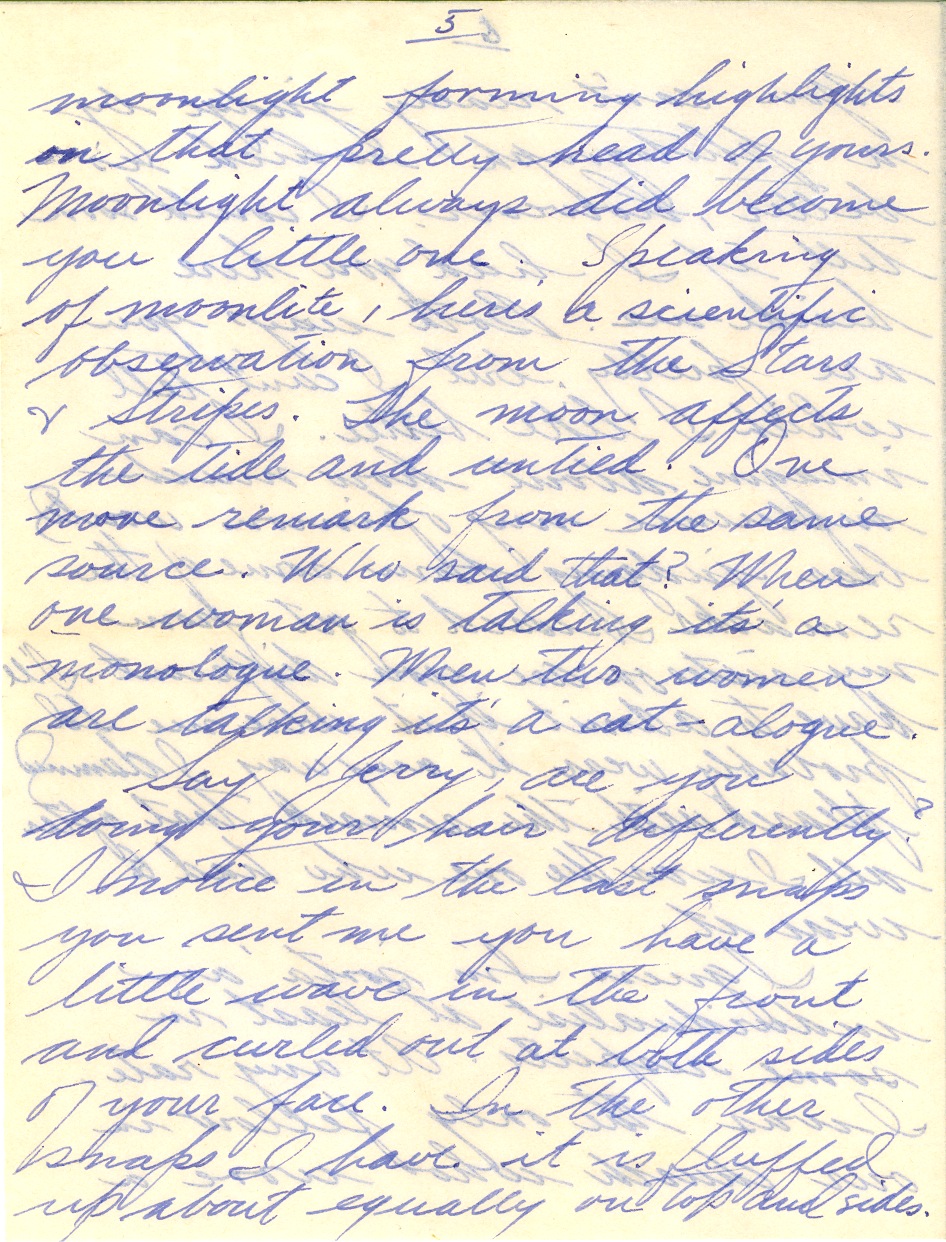 5
moonlight forming highlights
in that pretty head of yours.
Moonlight always did become
you little one. Speaking
of moonlite, here's a scientific
observation from the Stars
& Stripes. The moon affects
the tide and untied. One
more remark from the same
source. Who said that? When
one woman is talking it's a
monologue. When two women
are talking it's a cat-alogue.
Say Jerry, are you
doing your hair differently?
I notice in the last snaps
you sent me you have a
little wave in the front
and curled out at both sides
of your face. In the other
snaps I have it is fluffed
up about equally on top and sides.